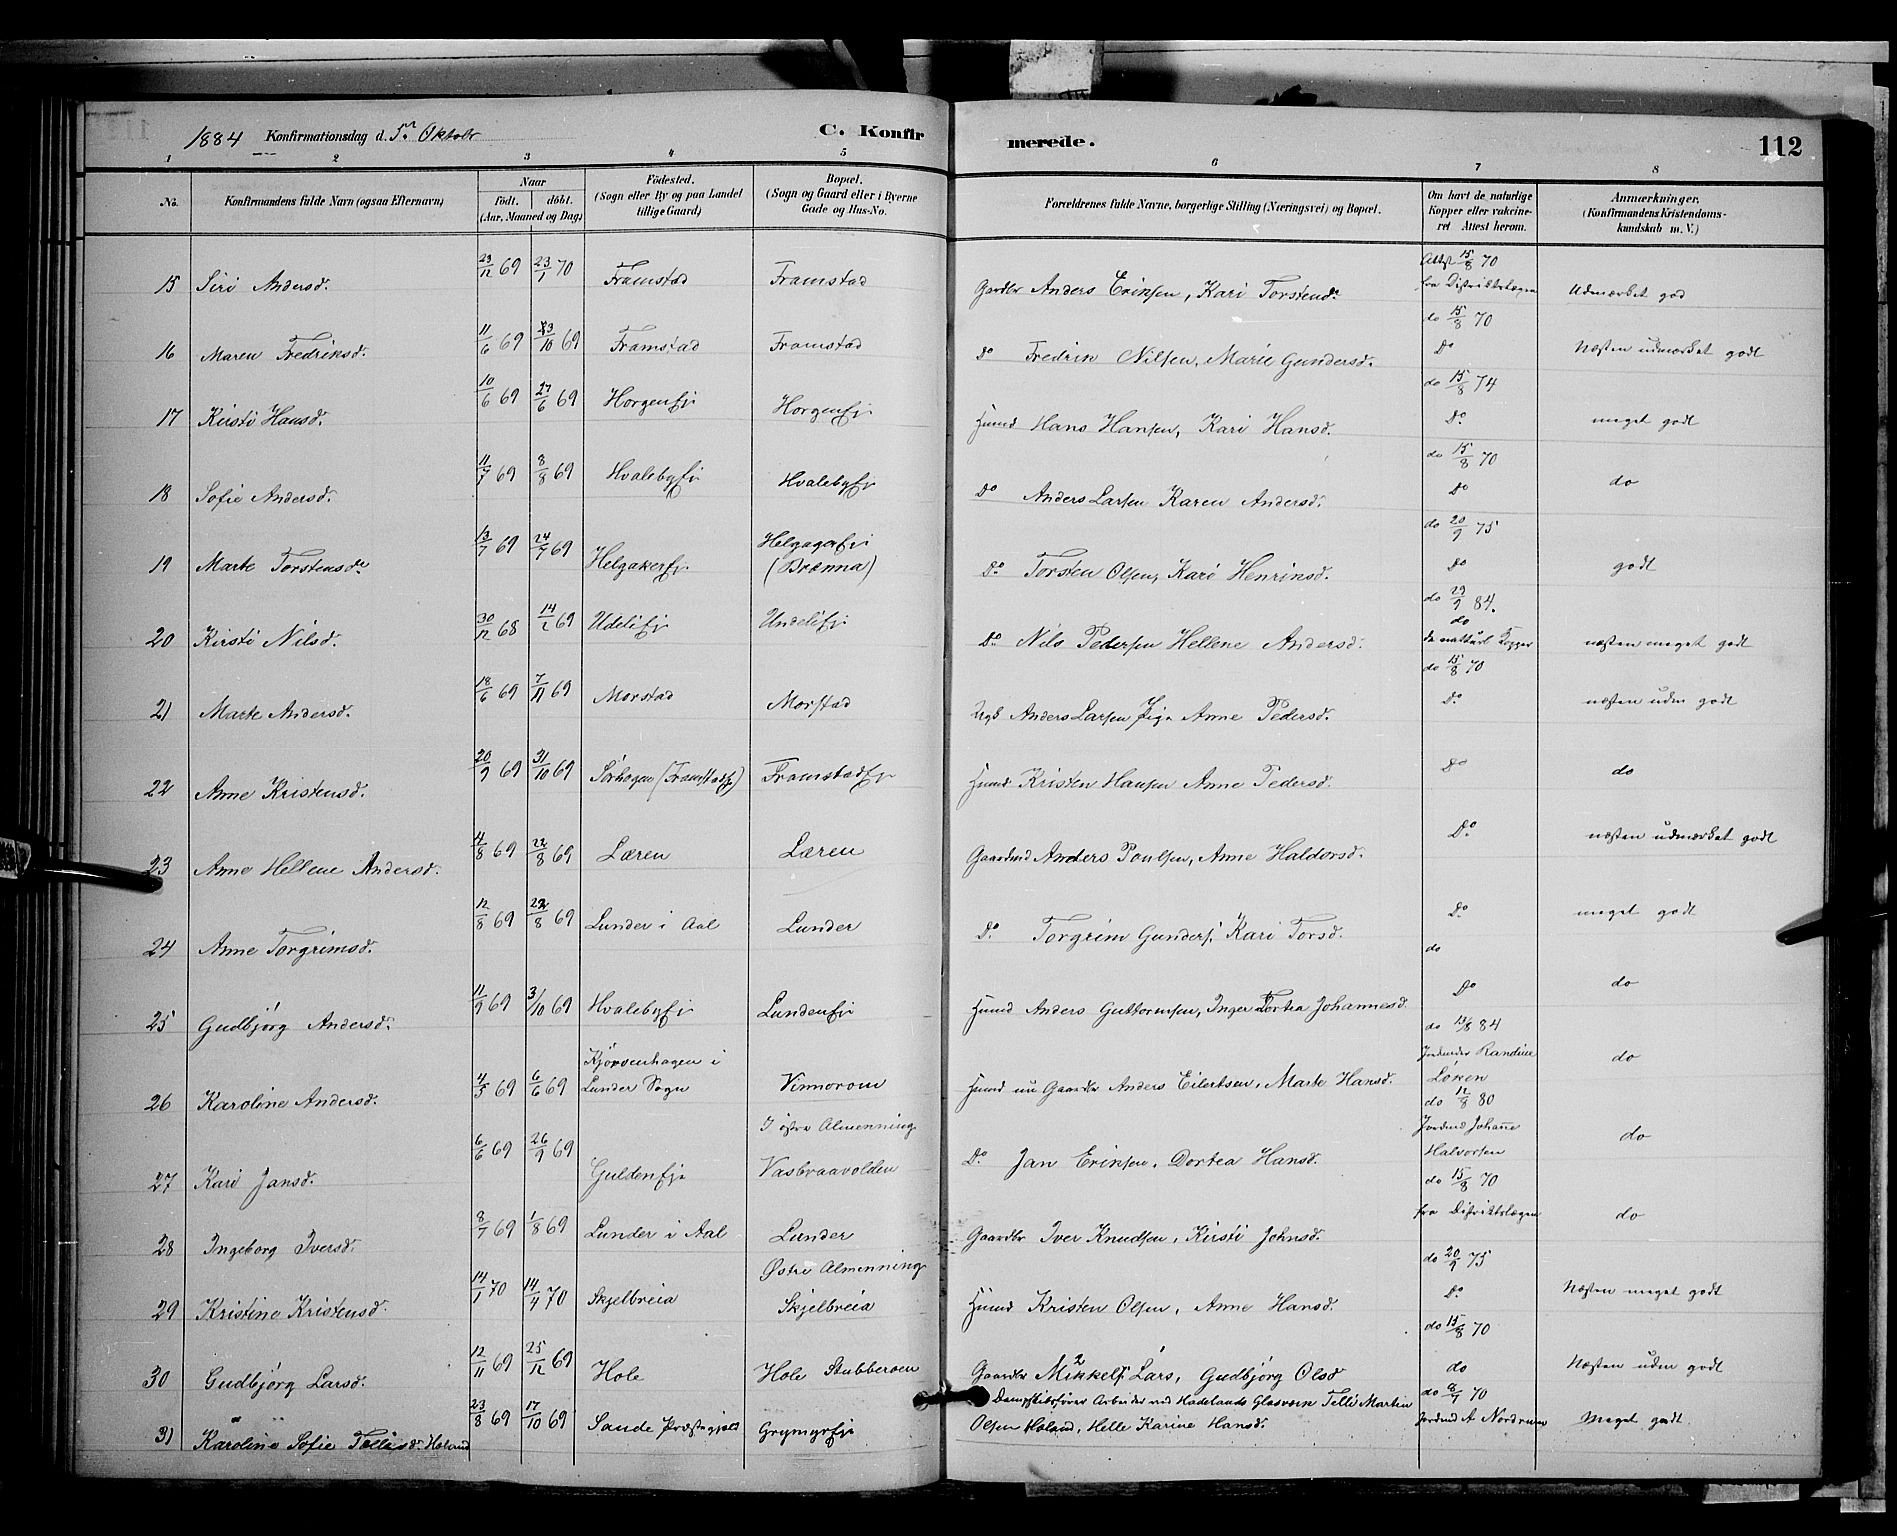 1884 Konfirmationsdag d. 5te Oktobr
C. Konfir
merede.
112
1 2 3 4 5 6 7 8
No.
Konfirmandens fulde Navn (ogsaa Efternavn)
Naar
födt. döbt.
(Aar, Maaned og Dag)
Födested.
(Sogn eller By og paa Landet
tillige Gaard)
Bopæl.
(Sogn og Gaard eller i Byerne
Gade og Hus-No.
Forældrenes fulde Navne, borgerlige Stilling (Næringsvei) og Bopæl.
Om havt de naturlige
Kopper eller vakcine-
ret Attest herom.
Anmærkninger.
(Konfirmandens Kristendoms-
kundskab m. V.)
15 Siri Andersd. 23/12 69 23/1 70 Framstad Framstad Gardbr Anders Eriksen, Kari Torstensdr Attst 15/8 70 fra Distriktslægen Udmærket god
16 Maren Fredriksd. 11/6 69 23/10 69 Framstad Framstad Do Fredrik Nilsen, Marie Gundersd. do 15/8 70 Do Næsten udmærket godt
17 Kirsti Hansd. 10/6 69 27/6 69 Horgenej. Horgenej. Husmd Hans Hansen, Kari Hansd. do 15/8 74 Do meget godt
18 Sofie Andersd. 11/7 69 8/8 69 Hvalebyej Hvalebyej Do Anders Larsen Karen Andersd. do 15/8 70 Do do
19 Marte Torstensdr 13/7 69 24/7 69 Helgakerej. Helgagerej (Brænna) Do Torsten Olsen, Kari Henriksd. do 20/9 75 Do godt
20 Kirsti Nilsd. 30/12 68 14/2 69 Udeliej Undeliej Do Nils Pedersen Hellene Andersd. do 29/9 84. do de natturl Kopper næsten meget godt
21 Marte Andersd. 18/6 69 7/11 69 Morstad Morstad Ugk Anders Larsen Pige Anne Pedersd. do 15/8 70 Do næsten udm godt
22 Anne Kristensd. 20/9 69 31/10 69 Sörhagen (Framstadej) Framstadej Husmd Kristen Hansen Anne Pedersd. Do do
23 Anne Hellene Andersd. 4/8 69 22/8 69 Læren Læren Gaardmd Anders Poulsen, Anne Haldorsd. Do næsten udmærket godt
24 Anne Torgrimsd. 12/8 69 22/8 69 Lunder i Aal Lunder Do Torgrim Gunders. Kari Torsd. Do meget godt
25 Gudbjörg Andersd. 11/9 69 3/10 69 Hvalebyej Lundenej Husmd Anders Guttormsen, Inger Dortea Johannesd. do Do do
26 Karoline Andersd. 4/5 69 6/6 69 Kjörvenhagen i Lunder Sogn Vinnorom Husmd nu Gaardbr Anders Eilertsen, Marte Hansd. do 13/8 84 Jordmder Randine Loken do
27 Kari Jansd. 6/6 69 26/9 69 Guldenej. I östre Almenning Vasbraavolden Do Jan Eriksen, Dortea Hansd. do 12/8 80 Jordmd Johane Halvorsen do
28 Ingeborg Iversd. 8/7 69 1/8 69 Lunder i Aal Lunder Gaardbr Iver Knudsen, Kirsti Johnsd. do 15/8 70 fra Distriktslægen do
29 Kristine Kristensd. 14/1 70 14/4 70 Skjelbreia Östre Almenning Skjelbreia Husmd Kristen Olsen, Anne Hansd. do 20/9 75 Do Næsten meget godt
30 Gudbjörg Larsd. 12/11 69 25/12 69 Hole Hole Stubberoen Gaardbr Mikkels Lars, Gudbjörg Olsd do 15/8 70 do Næsten udm godt
31 Karoline Sofie Tellisd. Holand 23/8 69 17/10 69 Sande Præstegjæld Grymyrej Dampskibsfører Arbeider ved Hadelands Glasværk Telli Martin Olsen Holand, Helle Karine Hansd. do 8/7 70 Jordmd A Nordrum Meget godt